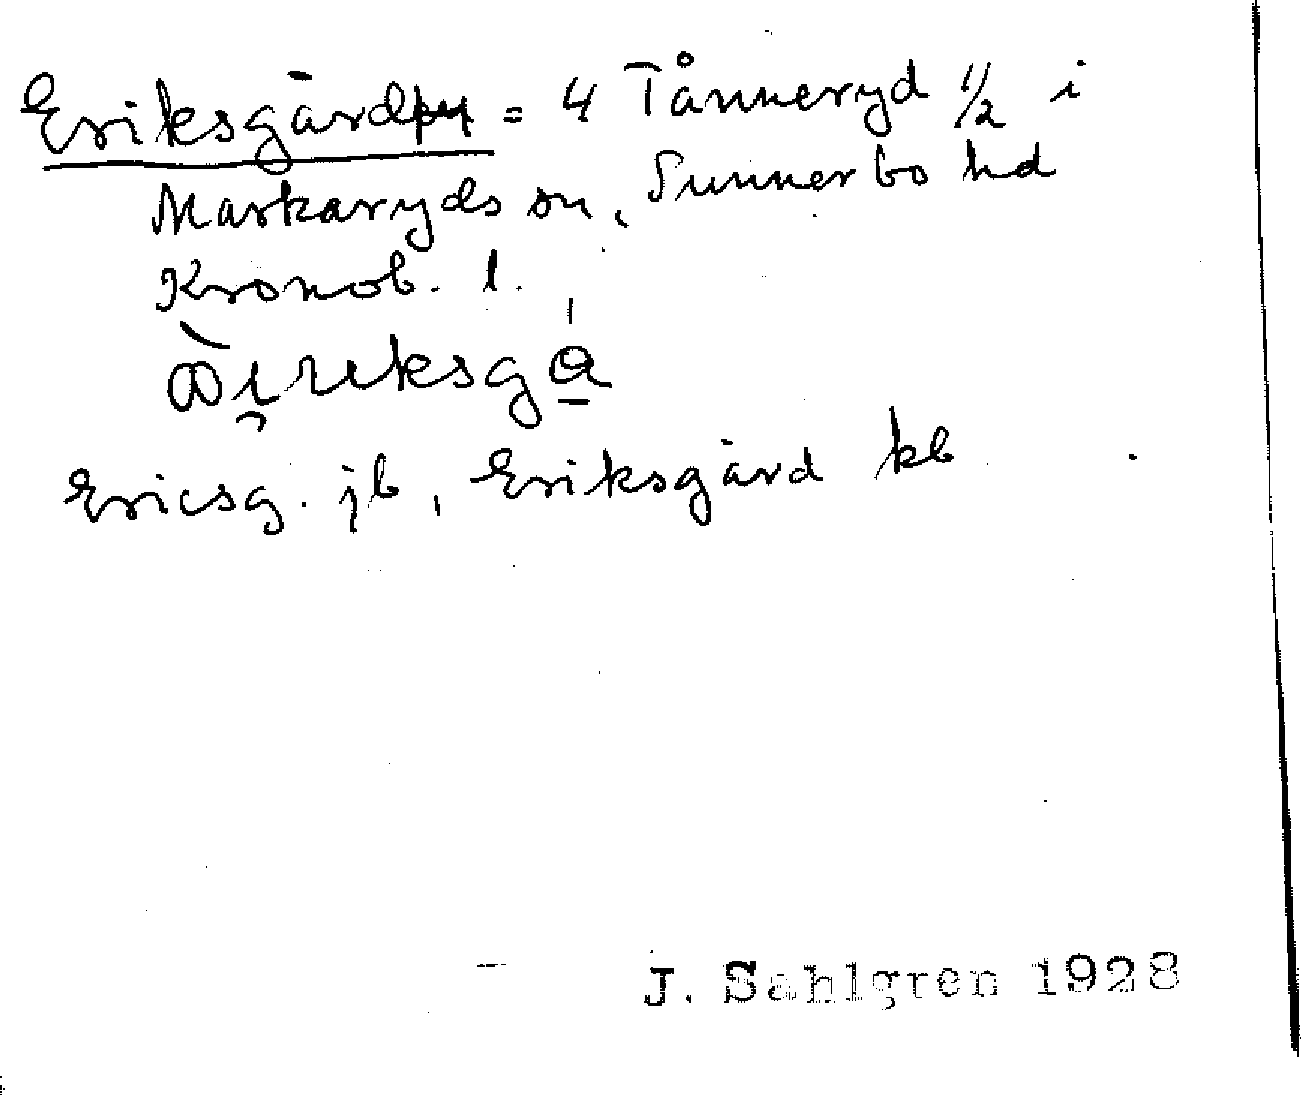 Eriksgård = 4 Tånneryd 1/2 i
Markaryds sn, Sunnerbo hd
Kronob. l.
Ericsg. jb, Eriksgård kb
J. Sahlgren 1928